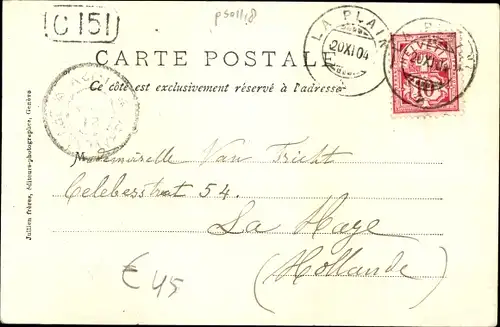 C 151
psoll,8
LA PLAINE
20 XI 04
20 XI 04
HELVETIA
10
CARTE POSTALE
Ce côté est exclusivement réservé à l'adresse
Mademoiselle Van Tricht
Celebesstraat 54.
La Haye
(Hollande)
€ 45
Jullien frères, éditeurs-photographes, Genève